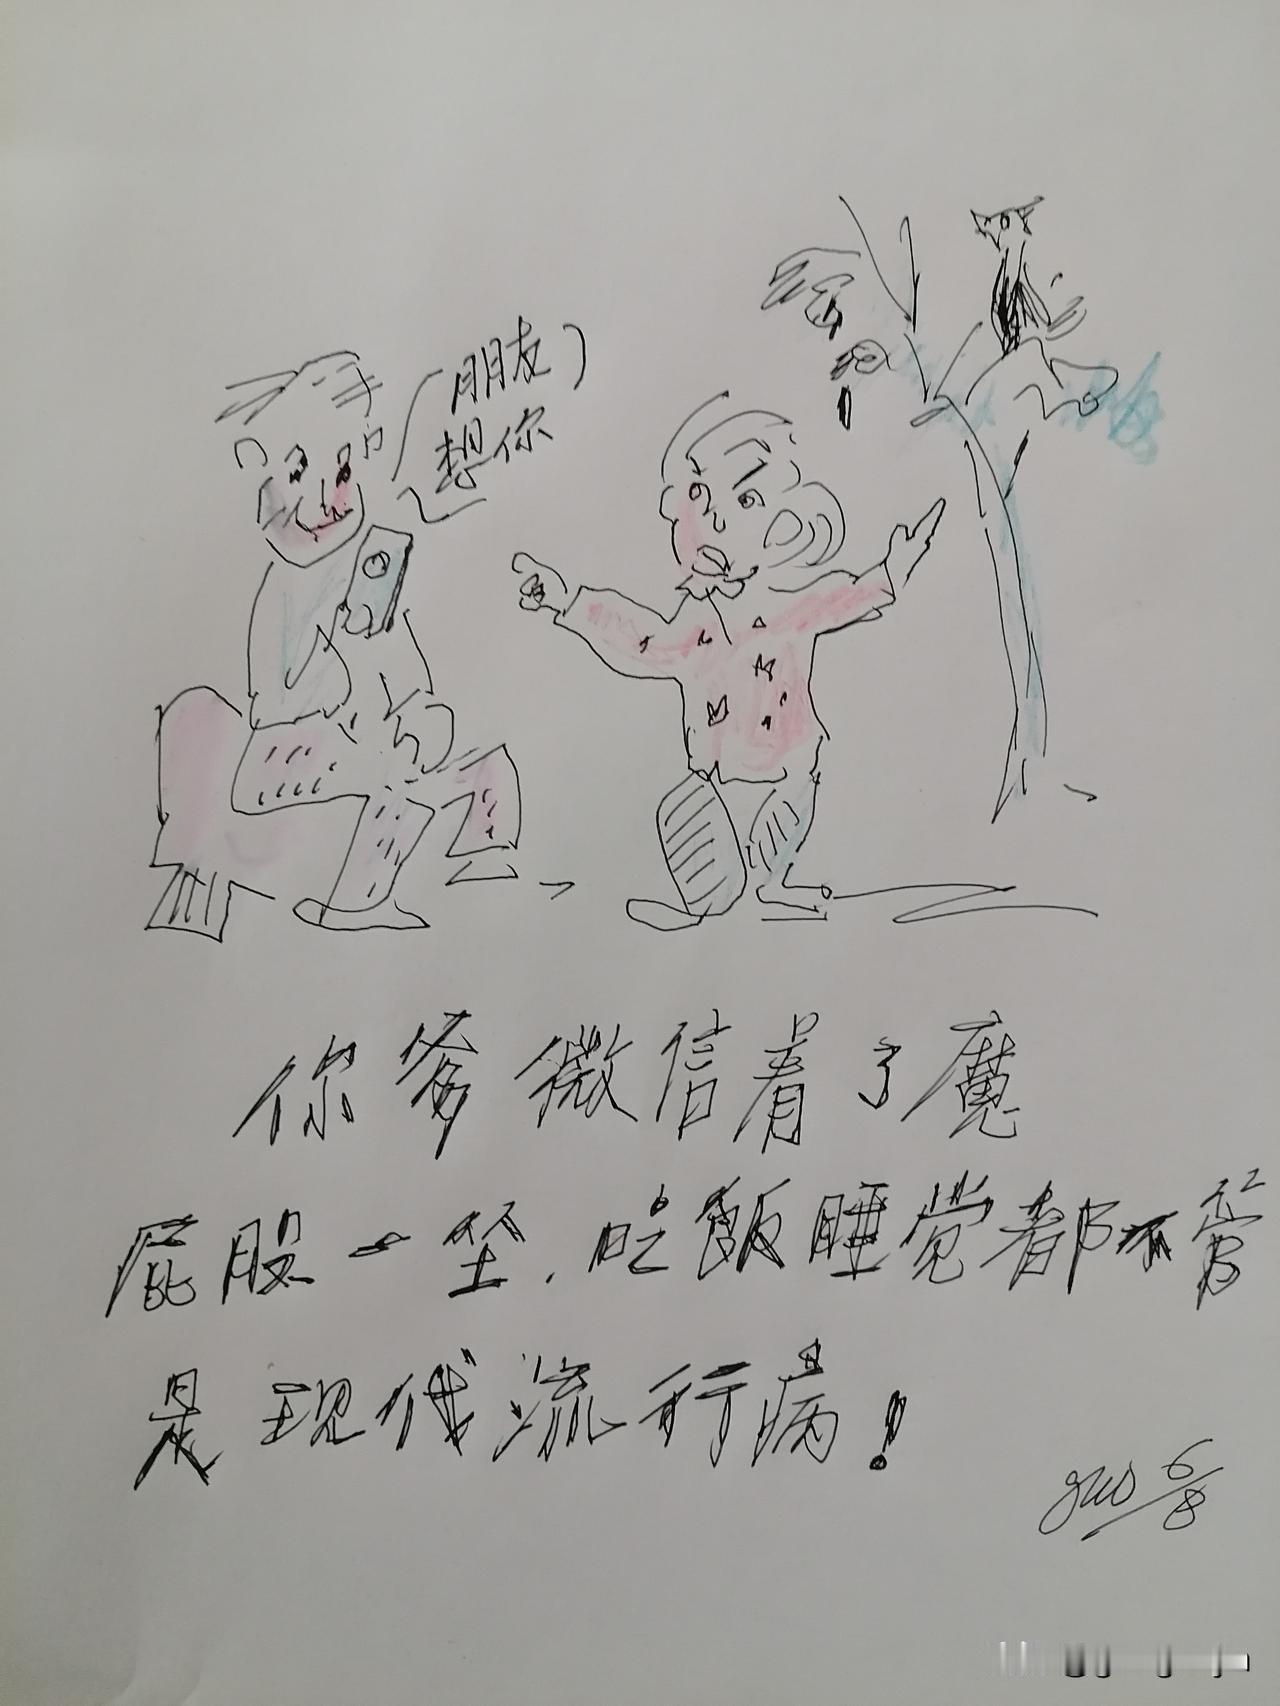 朋友
想你
你爹微信着了魔
屁股一坐.吃飯睡觉都不管
是现代流行病!
guo 6/8